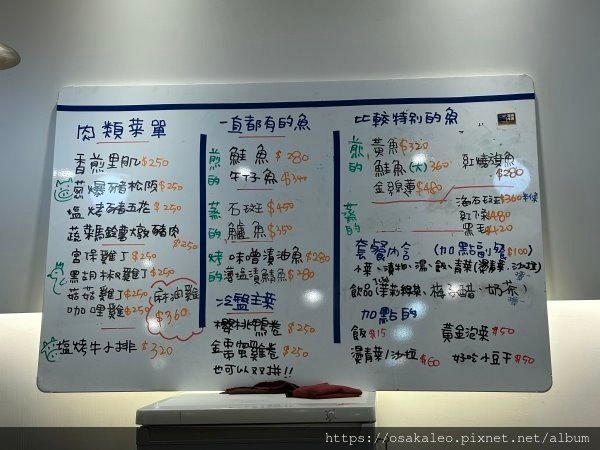 肉類菜單
香煎里肌 $250
蔥爆豬松阪 $250
塩烤豬五花 $250
蔬菜馬鈴薯燉豬肉
$250
宮保雞丁 $250
黑胡椒雞丁 $250
菇菇雞丁 $250
咖哩雞 $250
麻油雞
$360
塩烤牛小排 $320
一直都有的魚
煎的
鮭魚 $280
午仔魚 $340
蒸的
石斑 $450
鱸魚 $350
烤的
味噌漬油魚 $280
薄塩漬鯖魚 $280
冷盤主菜
櫻桃鴨卷 $250
金棗蜜雞卷 $250
也可以双拼!!
比較特別的魚
煎的
黃魚 $320
鮭魚(大) 360
金線黃 $480
紅燒海魚
$280
蒸的
海石斑 $360
紅下 $480
黑毛 $420
套餐內含 (加點副餐 $100)
小菜、漬物、湯、飯、青菜(燙青菜.沙拉擇一)
飲品
加點的
飯 $15
黃金泡菜 $50
燙青菜/沙拉 $60
好吃小豆干 $50
https://osakaleo.pixnet.net/album